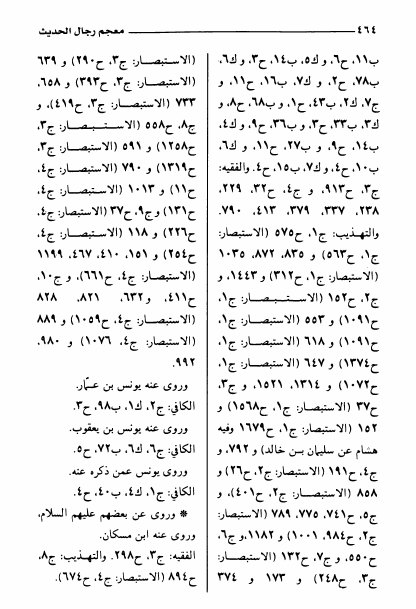 ٤٦٤ معجم رجال الحديث
ب١١، ح٦، و ك٥، ب١٤، ح٣، و ك٦،
ب٧٨، ح٢، و ك٧، ب١٦، ح١١، و
ج٧، ك٢، ب٤٣، ح١، و ب٦٨، ح٨، و
ك٣، ب٣٣، ح٣، و ب٣٦، ح٩، و ك٤،
ب١٤، ح٩، و ب٢٧، ح١١، و ك٦،
ب١٠، ح٤، و ك٧، ب١٥، ح٤. والفقيه:
ج٣، ح٩١٣، و ج٤، ح٣٢، ٢٢٩،
٢٣٨، ٣٣٧، ٣٧٩، ٤١٣، ٧٩٠.
والتهذيب: ج١، ح٥٧٥ (الاستبصار:
ج١، ح٥٦٣) و ٨٣٥، ٨٧٢، ١٠٣٥
(الاستبصار: ج١، ح٣١٢) و ١٤٤٣، و
ج٢، ح١٥٢ (الاستبصار: ج١،
ح١٠٩١) و ٥٥٣ (الاستبصار: ج١،
ح١٠٩١) و ٦١٨ (الاستبصار: ج١،
ح١٣٧٤) و ٦٤٧ (الاستبصار: ج١،
ح١٠٧٢) و ١٣١٤، ١٥٢١، و ج٣،
ح٣٧ (الاستبصار: ج١، ح١٥٦٨) و
١٥٢ (الاستبصار: ج١، ح١٦٧٩ وفيه
هشام عن سليمان بن خالد) و ٧٩٢، و
ج٤، ح١٩١ (الاستبصار: ج٢، ح٢٦) و
٨٥٨ (الاستبصار: ج٢، ح٤٠١)، و
ج٥، ح٧٤١، ٧٧٥، ٧٨٩ (الاستبصار:
ج٢، ح٩٨٤، ١٠٠١) و ١١٨٢، و ج٦،
ح٥٥٠، و ج٧، ح١٣٢ (الاستبصار:
ج٣، ح٢٤٨) و ١٧٣ و ٣٧٤
(الاستبصار: ج٣، ح٢٩٠) و ٦٣٩
(الاستبصار: ج٣، ح٣٩٣) و ٦٥٨،
٧٣٣ (الاستبصار: ج٣، ح٤١٩)، و
ج٨، ح٥٥٨ (الاستبصار: ج٣،
ح١٢٥٨) و ٥٩١ (الاستبصار: ج٣،
ح١٣١٩) و ٧٩٠ (الاستبصار: ج٤،
ح١١) و ١٠١٣ (الاستبصار: ج٤،
ح١٣١) و ج٩، ح٣٧ (الاستبصار: ج٤،
ح٢٢٦) و ١١٨ (الاستبصار: ج٤،
ح٢٥٤) و ١٥١، ٤١٠، ٤٦٧، ١١٩٩
(الاستبصار: ج٤، ح٦٦١)، و ج١٠،
ح٤١١، و ٦٣٢، ٨٢١، ٨٢٨
(الاستبصار: ج٤، ح١٠٥٩) و ٨٨٩
(الاستبصار: ج٤، ١٠٧٦) و ٩٨٠،
٩٩٢.
وروى عنه يونس بن عمّار.
الكافي: ج٢، ك١، ب٩٨، ح٣.
وروى عنه يونس بن يعقوب.
الكافي: ج٦، ك٦، ب٧٢، ح٥.
وروى يونس عمن ذكره عنه.
الكافي: ج١، ك٤، ب٤٠، ح٤.
* وروى عن بعضهم عليهم السلام،
وروى عنه ابن مسكان.
الفقيه: ج٣، ح٢٩٨. والتهذيب: ج٨،
ح٨٩٤ (الاستبصار: ج٤، ح٦٧٤).